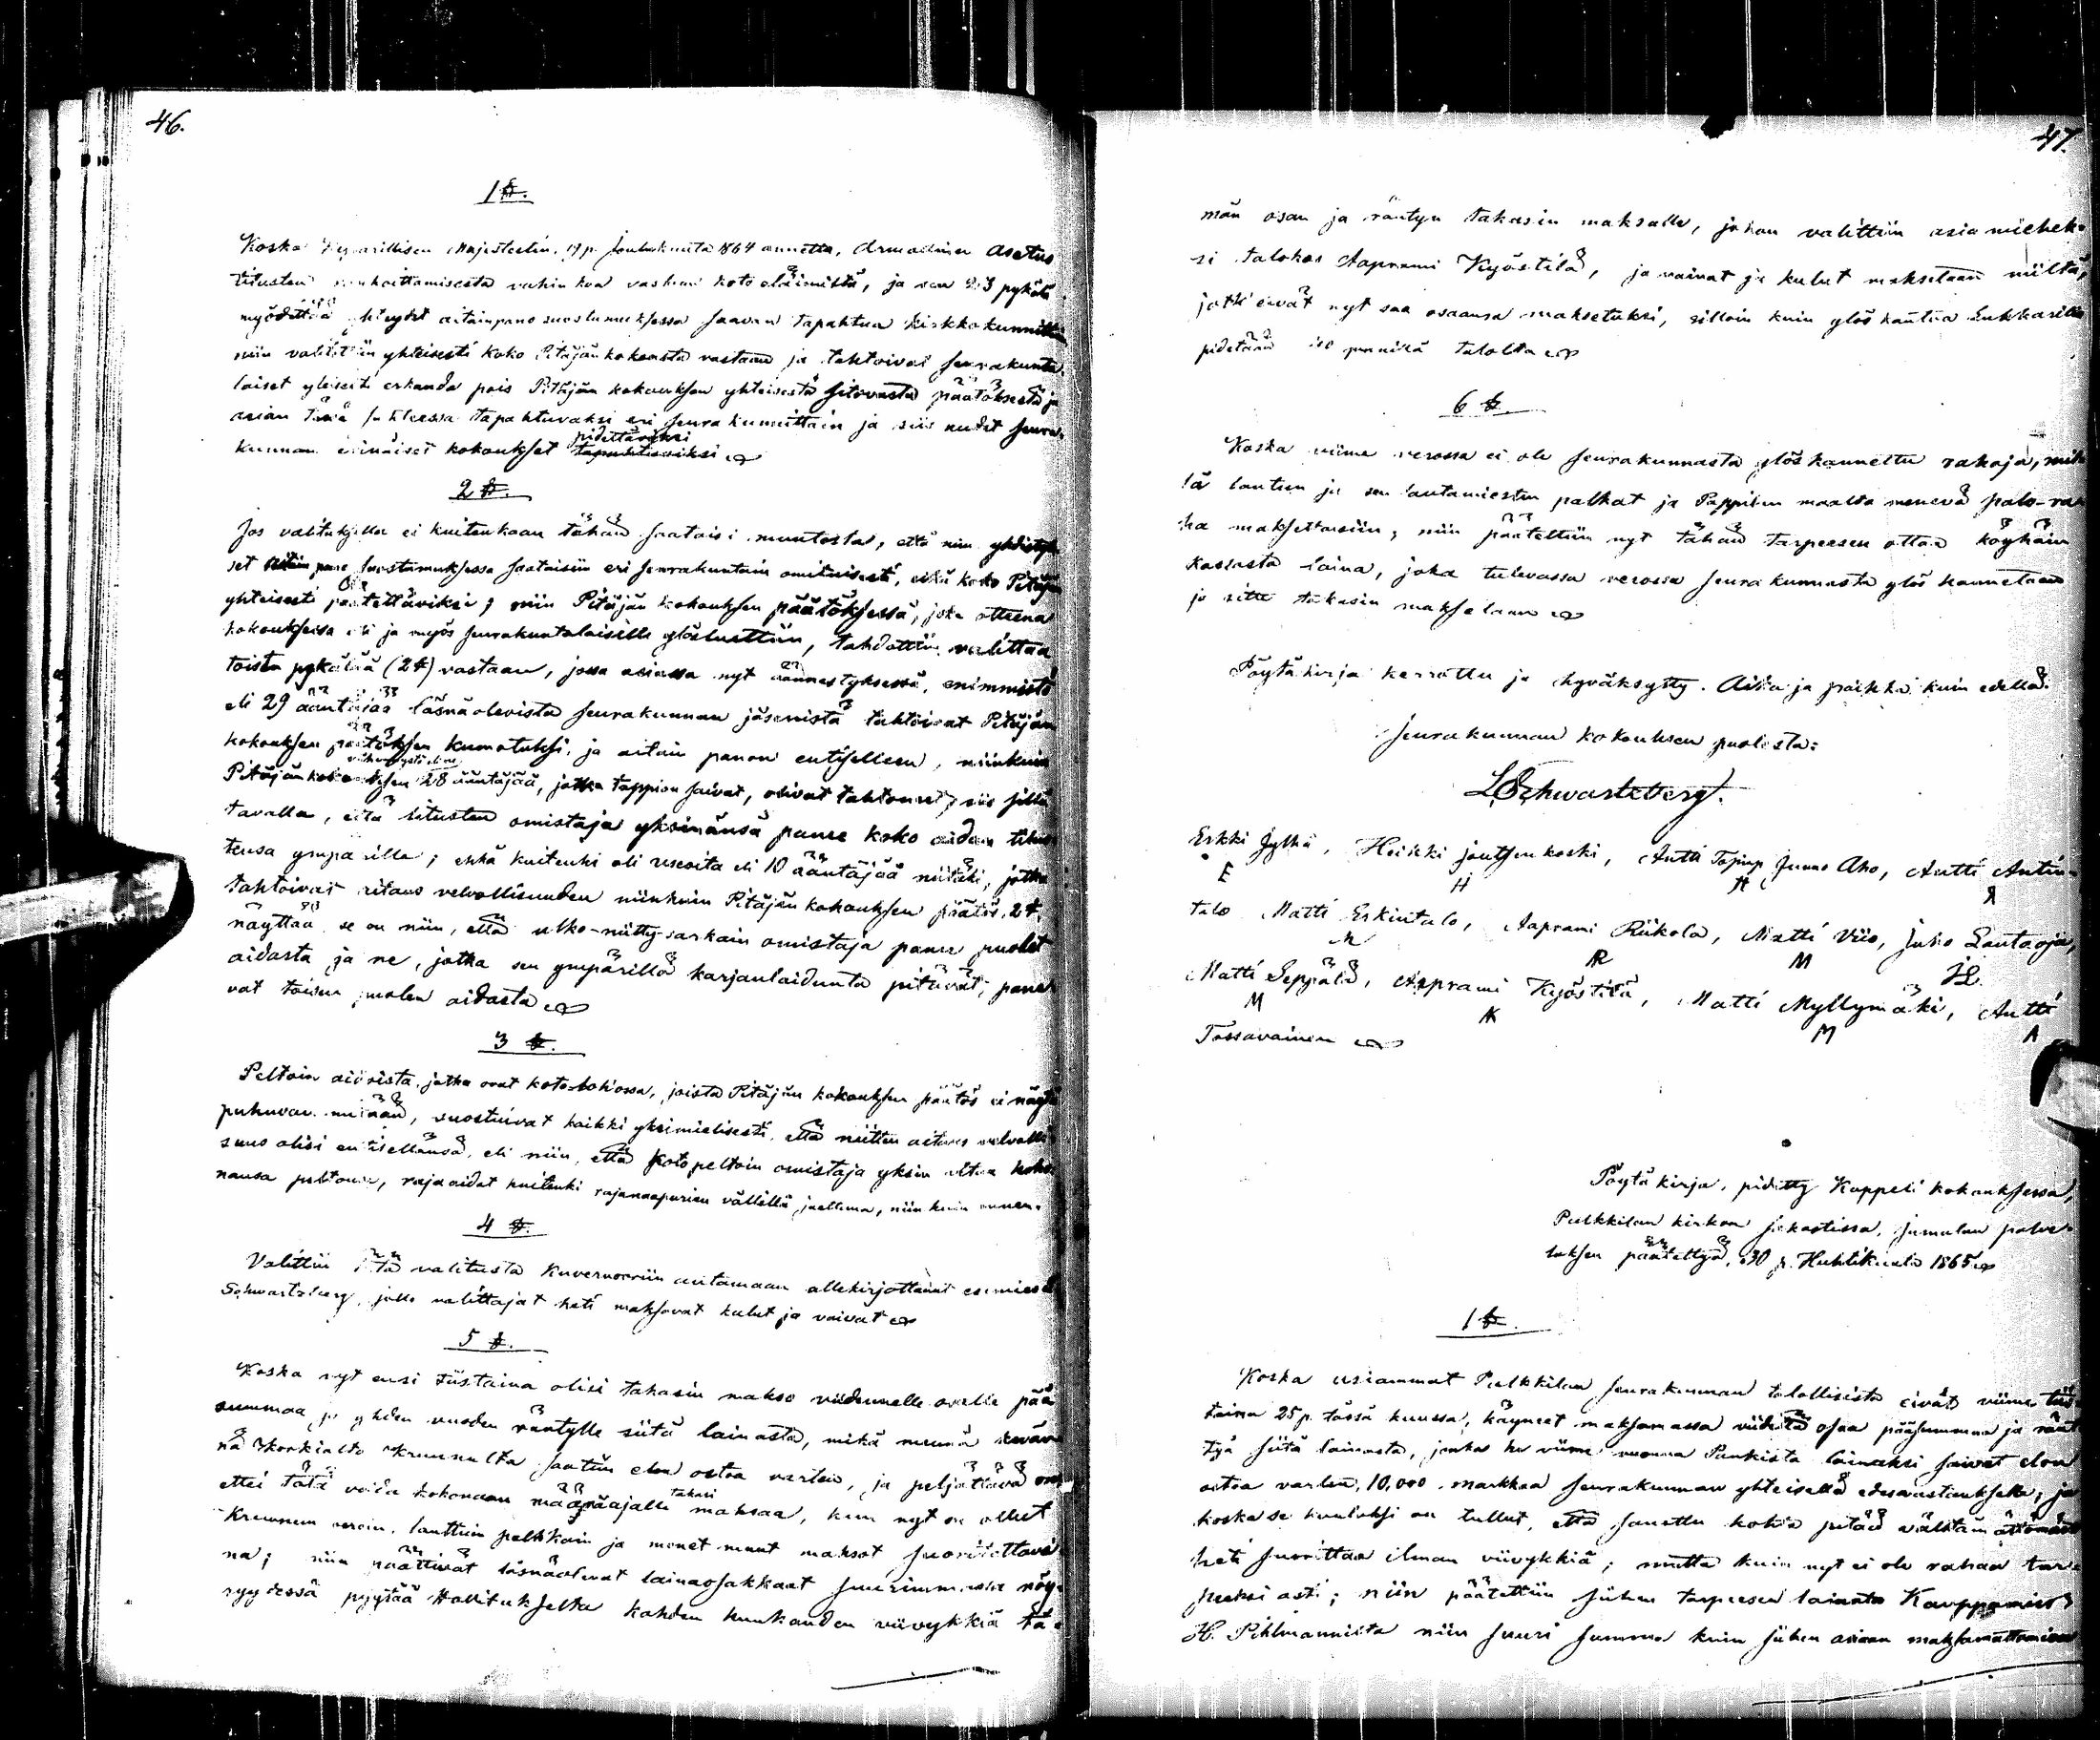 46.
1 §.
Koska Keisarillisen Majesteetin, 19 p. Joulukuuta 1864 annettu, Armollinen Asetus
tilusten rauhoittamisesta vahinkoa vastaan koto eläimiltä, ja sen 23 pykälä
myödittää yhteydet aitainpano suostumuksessa saavan tapahtua kirkkokunnittain
niin valitettiin yhteisesti koko Pitäjänkokousta vastaan ja tahtoivat seurakunta-
laiset yleisesti erkanda pois Pitäjän kokouksen yhteisestä sitovasta päätöksestä ja
asian tässä suhteessa tapahtuvaksi eri seurakunnittain ja siis uudet seura-
kunnan erinäiset kokoukset pidettäväksi
2 §.
Jos valituksella ei kuitenkaan tähän saataisi muutosta, että niin yhdistyk-
set aitain pano suostumuksessa saataisiin eri seurakuntain omituisesti, eikä koko Pitäjän
yhteisesti päätettäviksi; niin Pitäjän kokouksen päätöksessä, joka otteena
kokouksessa oli ja myös seurakuntalaisille ylösluettiin, tahdottiin valittaa
toista pykälää (2 §) vastaan, jossa asiassa nyt äännestyksessä, enimmistö
eli 29 ääntäjää läsnäolevista seurakunnan jäsenistä tahtoivat Pitäjän
kokouksen päätöksen kumotuksi, ja aitain panon entiselleen, niinkuin
Pitäjänkokouksen 28 ääntäjää, jotka tappion saivat, olivat tahtoneet, siis sillä
tavalla, että tilusten omistaja yksinänsä panee koko aidan tilus-
tensa ympärille; ehkä kuitenki oli useoita eli 10 ääntäjää niitäki, jotka
tahtoivat aitaus velvollisuuden niinkuin Pitäjän kokouksen päätös, 2 §,
näyttää, se on niin, että ulko-niitty-sarkain omistaja panee puolet
aidasta, ja ne, jotka sen ympärillä karjanlaidunta pitävät, pane-
vat toisen puolen aidasta
3 §.
Peltoin aidoista, jotka ovat koto-lohossa, joista Pitäjän kokouksen päätös ei näytä
puhuvan mitään, suostuivat kaikki yksimielisesti, että niitten aitaus velvolli-
suus olisi entisellänsä, eli niin, että koto peltoin omistaja yksin aitaa koko-
nansa peltonsa, rajaaidat kuitenki rajanaapurien välillä jaettuna, niin kuin ennen.
4 §.
Valittiin tätä valitusta Kuvernooriin antamaan allekirjottanut esimies
Schwartzberg, jolle valittajat heti maksavat kulut ja vaivat
5 §.
Koska nyt ensi tiistaina olisi takasin makso viidennelle osalle pää
summaa ja yhden vuoden räntylle siitä lainasta, mikä menneä kevään-
nä Korkialta Kruunulta saatiin elon ostoa varten, ja peljättävä on
ettei tätä voida kokonaan määräajalle takasi maksaa, kun nyt on ollut
Kruunun veroin, lauttuin palkkain ja monet muut maksot suoritettava-
na; niin päättivät läsnäolevat lainaosakkaat suurimmassa nöy-
ryydessä pyytää Hallitukselta kahden kuukauden viivykkiä tä-
47.
män osan ja räntyn takasin maksolle, johon valittiin asia miehek-
si talokas Aaprami Kyöstilä, ja vaivat ja kulut maksetaan niiltä,
jotk' eivät nyt saa osaansa maksetuksi, silloin kuin ylös kantua Lukkarille
pidetään 10 penniä talolta
6 §
Koska viime verossa ei ole seurakunnasta ylös kannettu rahoja, mil-
lä lautun ja sen lautamiesten palkat ja Pappilan maalta menevä palo-ra-
ha maksettaisiin; niin päätettiin nyt tähän tarpeesen ottaa köyhäin
kassasta laina, joka tulevassa verossa seurakunnasta ylös kannetaan
ja siitä takasin maksetaan
Pöytäkirja kerrottu ja hyväksytty. Aika ja paikka kuin edellä.
Seurakunnan kokouksen puolesta:
LSchwartzberg.
Erkki Jylhä, Heikki Joutsenkoski, Antti Tapup Junno Aho, Antti Antin-
E H A A
talo Matti Erkintalo, Aaprami Riikola, Matti Viio, Juho Lautaoja,
M AR M JL
Matti Seppälä, Aaprami Kyöstilä, Matti Myllymäki, Antti
M AK M A
Tossavainen
Pöytäkirja, pidetty Kappeli kokouksessa,
Pulkkilan kirkon sakastissa, Jumalan palve-
luksen päätettyä, 30 p. Huhtikuuta 1865
1 §.
Koska useammat Pulkkilan seurakunnan talollisista eivät viime tiis-
taina 25 p. tässä kuussa, käyneet maksamassa viidettä osaa pääsummaa ja ränt-
tyä siitä lainasta, jonka he viime vuonna Pankista lainaksi saivat elon
ostoa varten, 10,000 markkaa seurakunnan yhteisellä edesvastauksella; ja
koska se kuuluksi on tullut, että sanottu kohta pitää välttämättömästi
heti suorittaa ilman viivykkiä; mutta kuin nyt ei ole rahaa tar-
peeksi asti; niin päätettiin siihen tarpeesen lainata Kauppamies
H. Pihlmannilta niin suuri summa kuin siihen asiaan maksamattomien